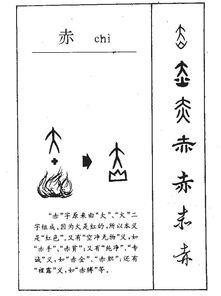 赤 chì
"赤"字原来由"大"、"火"二
字组成,因为火是红的,所以本义
是"红色"。又有"空净无物"义,如
"赤手"、"赤贫";又有"纯净"、"专
诚"义,如"赤金"、"赤胆";还有
"裸露"义,如"赤膊"等。
赤
赤